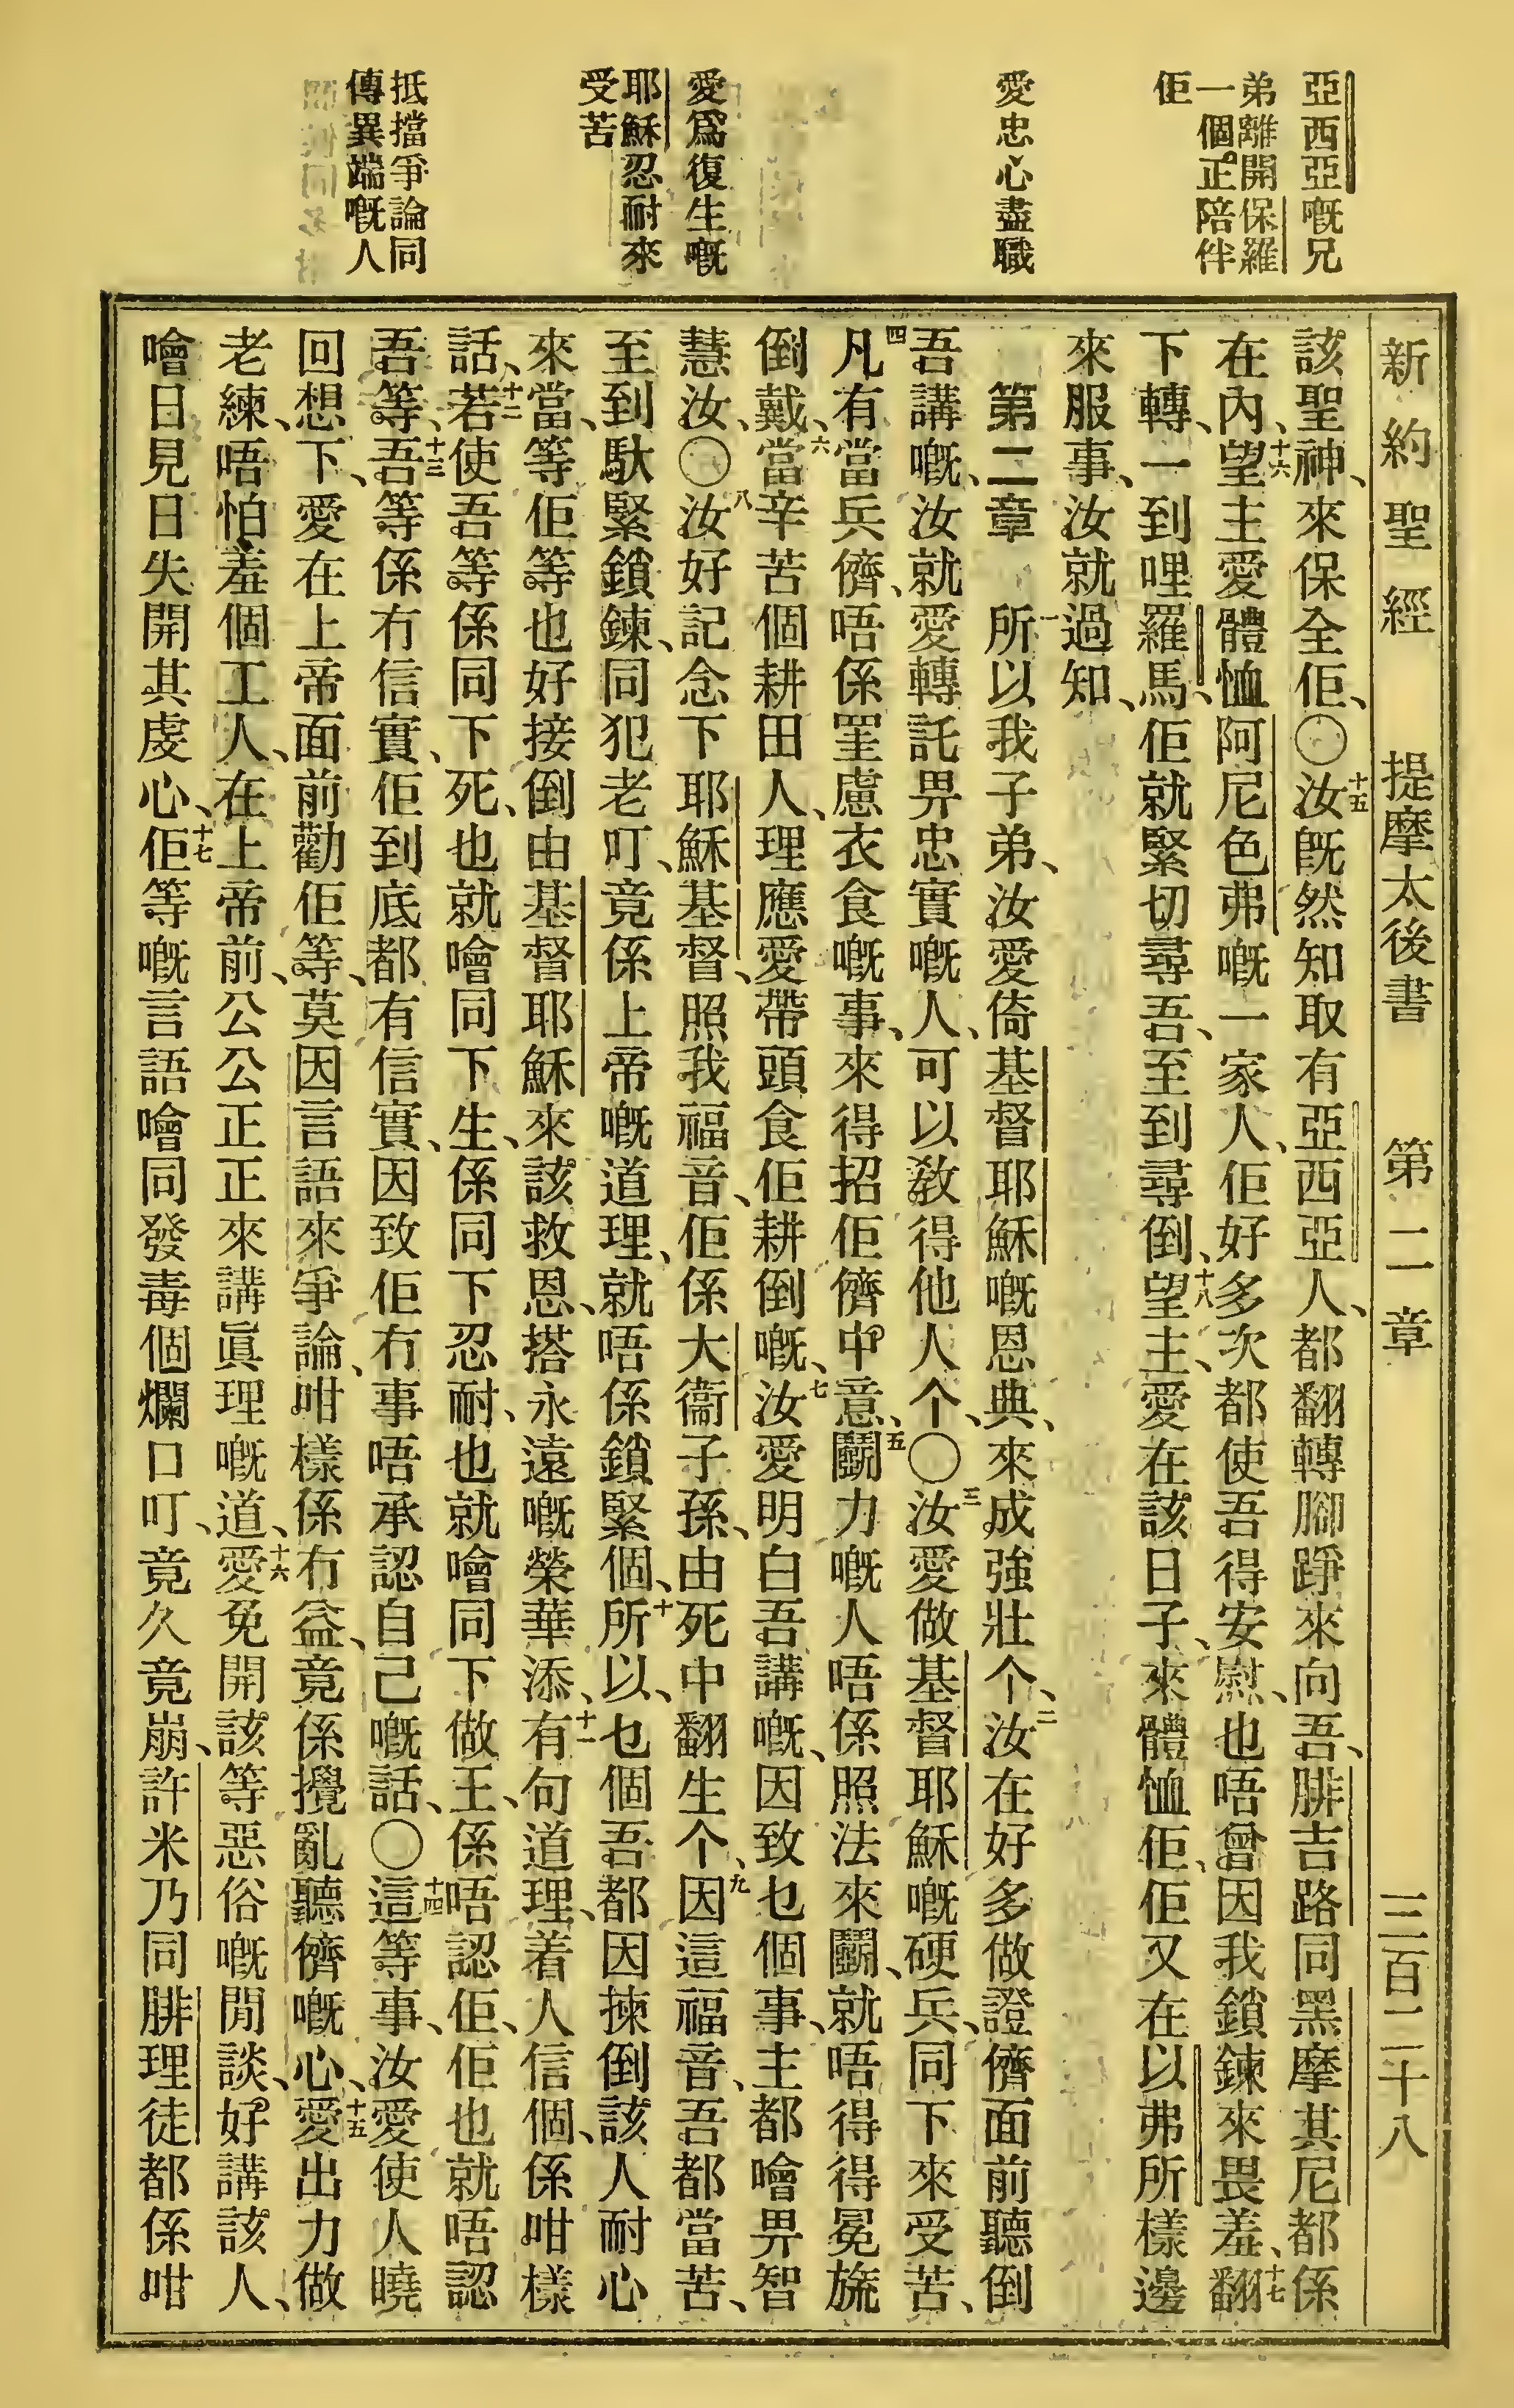 新約聖經 提摩太後書 第二章 三百二十八
亞西亞嘅兄
弟離開保羅
一個正陪伴
佢
愛忠心盡職
愛爲復生嘅
耶穌忍耐來
受苦
抵擋爭論同
傳異端嘅人
該聖神、來保全佢、〇十五汝旣然知取有亞西亞人、都翻轉腳踭來向吾、腓吉路同黑摩其尼都係
在內、十六望主愛體恤阿尼色弗嘅一家人、佢好多次都使吾得安慰、也唔曾因我鎖鍊來畏羞、十七翻
下轉、一到哩羅馬、佢就緊切尋吾、至到尋倒、十八望主、愛在該日子、來體恤佢、佢又在以弗所樣邊
來服事、汝就過知、
第二章 一所以我子弟、汝愛倚基督耶穌嘅恩典、來成強壯个、二汝在好多做證儕面前聽倒
吾講嘅、汝就愛轉託畀忠實嘅人、可以教得他人个、〇三汝愛做基督耶穌嘅硬兵、同下來受苦、
四凡有當兵儕、唔係罣慮衣食嘅事、來得招佢儕中意、五鬭力嘅人唔係照法來鬭、就唔得得冕旒
倒戴、六當辛苦個耕田人、理應愛帶頭食佢耕倒嘅、七汝愛明白吾講嘅、因致乜個事、主都噲畀智
慧汝、〇八汝好記念下耶穌基督、照我福音、佢係大衞子孫、由死中翻生个、九因這福音、吾都當苦、
至到馱緊鎖鍊、同犯老叮、竟係上帝嘅道理、就唔係鎖緊個、十所以、乜個吾都因揀倒該人耐心
來當、等佢等也好接倒由基督耶穌來該救恩、搭永遠嘅榮華添、十一有句道理、着人信個、係咁樣
話、十二若使吾等係同下死、也就噲同下生、係同下忍耐、也就噲同下做王、係唔認佢、佢也就唔認
吾等、十三吾等係冇信實、佢到底都有信實、因致佢冇事唔承認自己嘅話、〇十四這等事、汝愛使人曉
回想下、愛在上帝面前勸佢等、莫因言語來爭論、咁樣係冇益、竟係攪亂聽儕嘅心、十五愛出力做
老練、唔怕羞個工人、在上帝前、公公正正來講眞理嘅道、十六愛免開該等惡俗嘅閒談、好講該人、
噲日見日失開其虔心、十七佢等嘅言語噲同發毒個爛口叮、竟久竟崩、許米乃同腓理徒都係咁